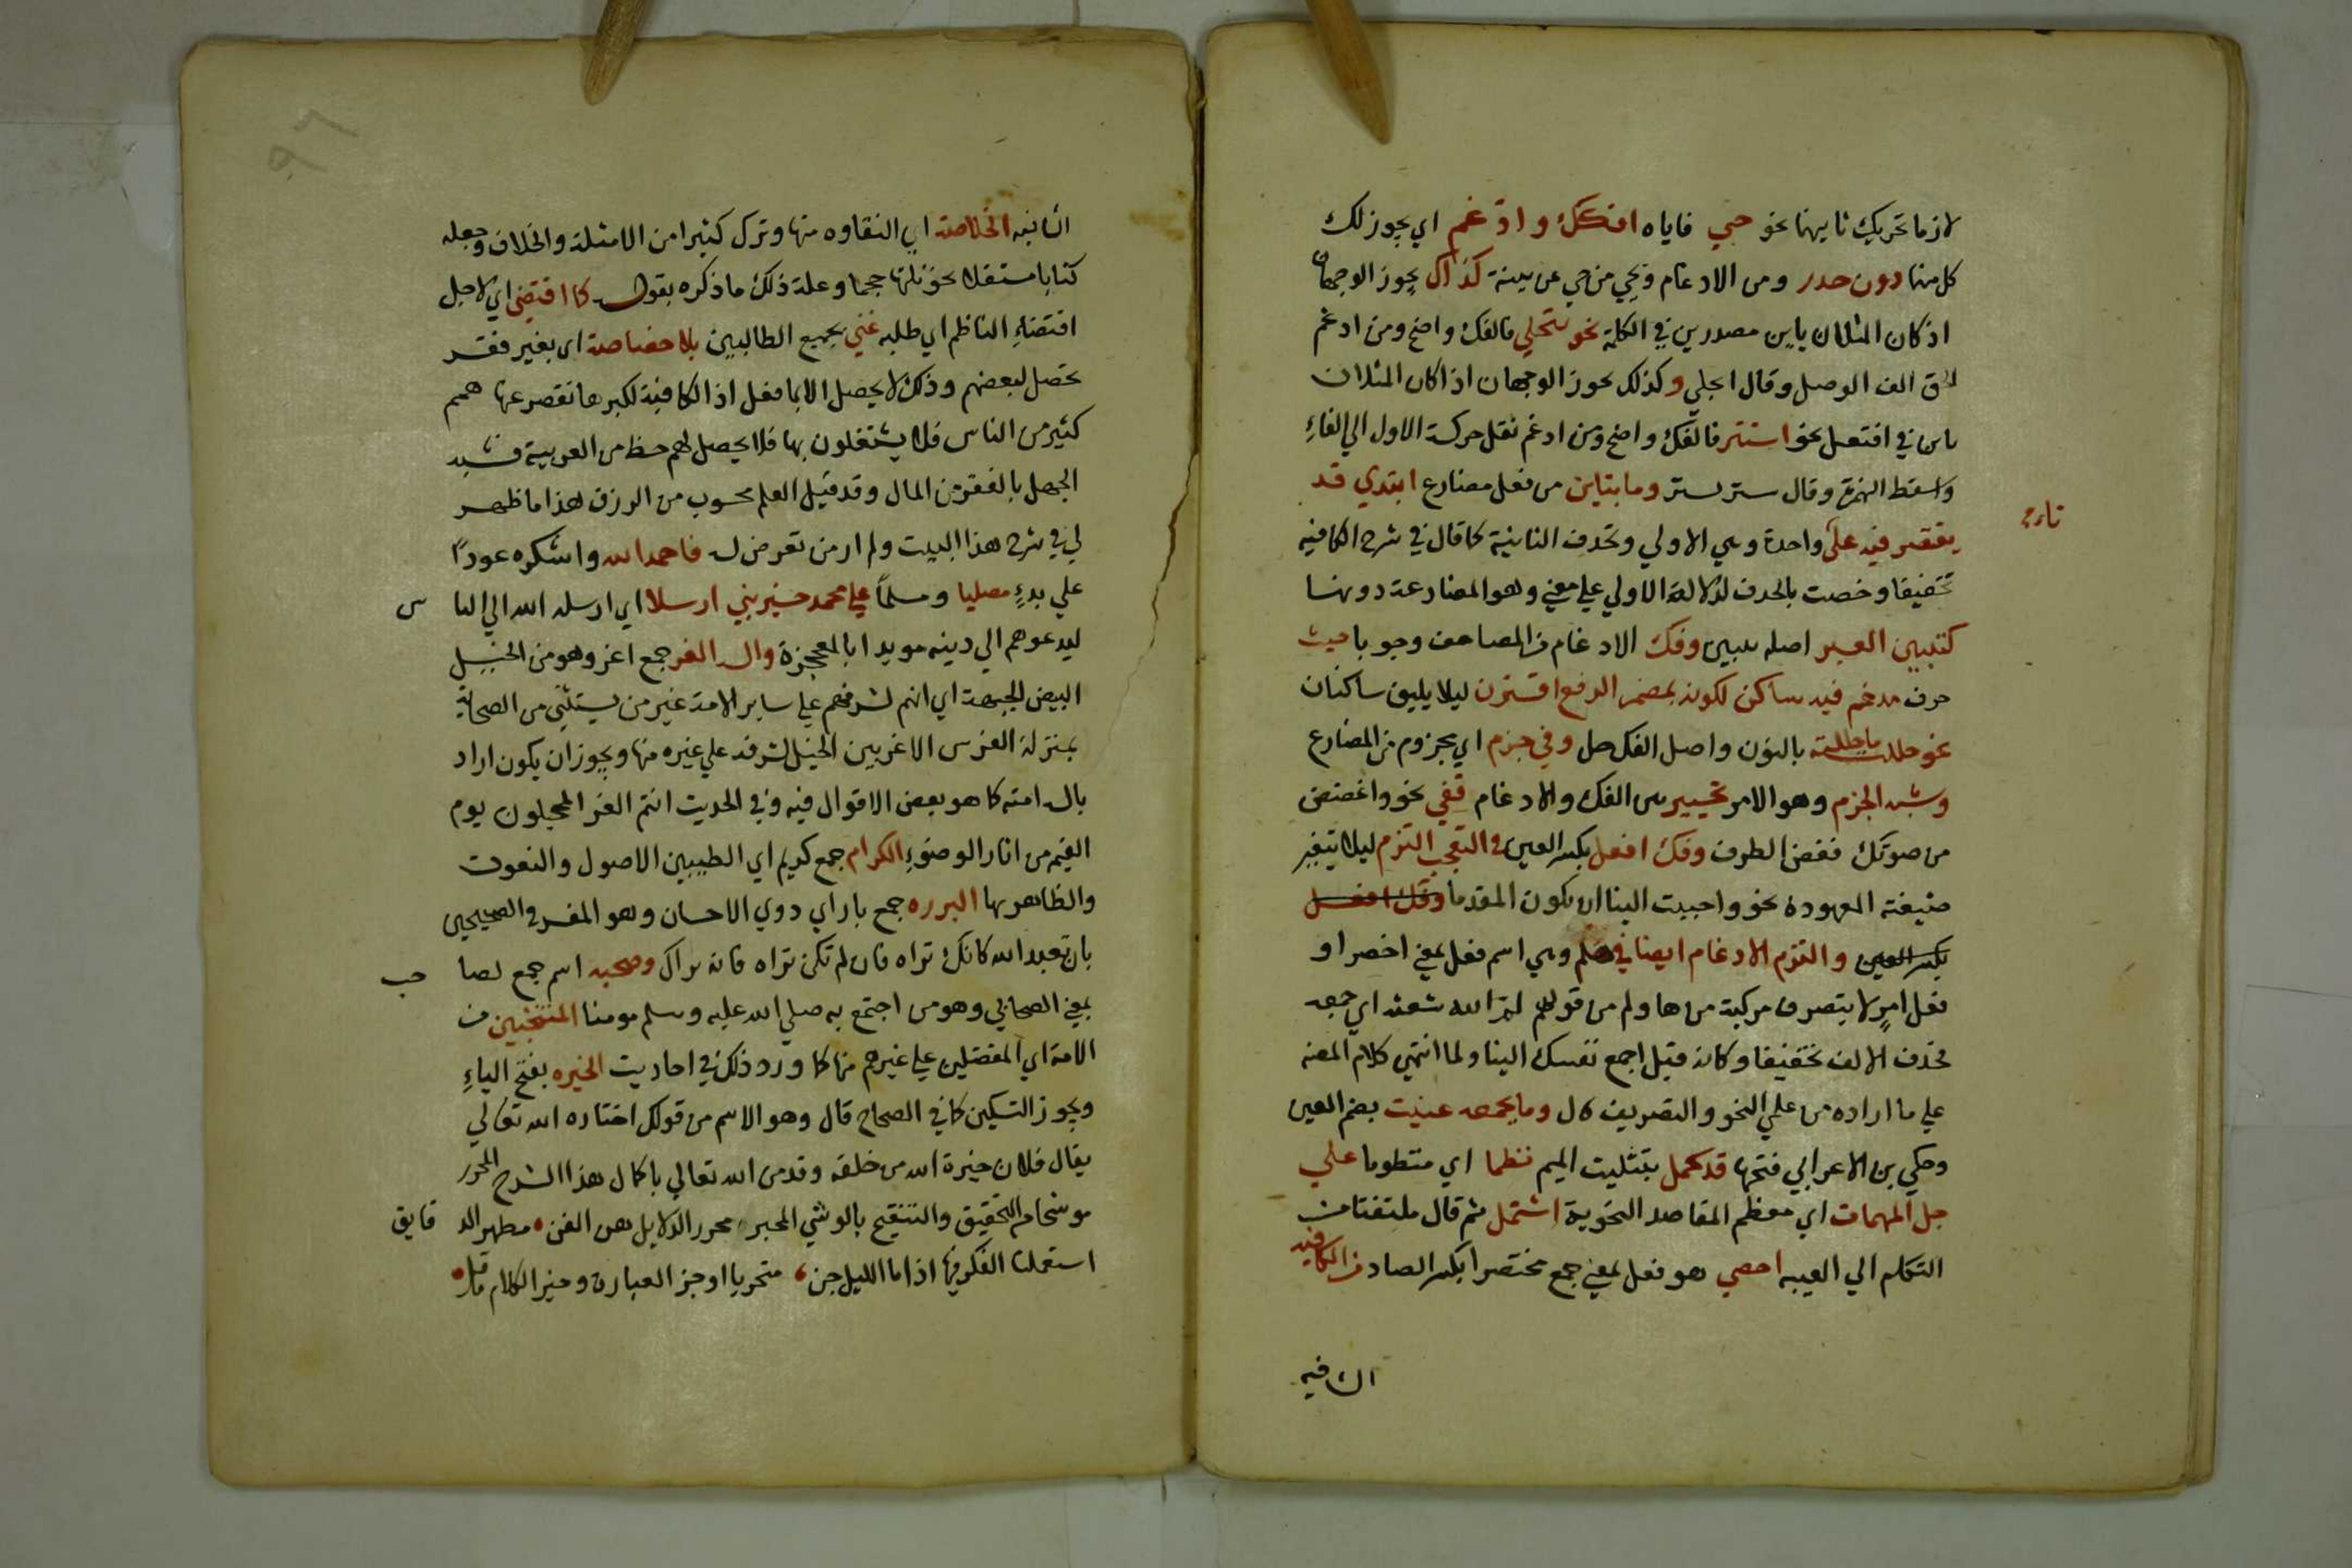 لازما تحريك ثانيهما نحو حيي فاياه افكك وادغم اي يجوز لك
كل منهما دون حذر ومن الادغام ويحيي من حي عن بينة كذاك يجوز الوجهان
اذ كان المثلان ياين مصدرين في الكلمة نحو تتجلي فالفك واضح ومن ادغم
الحق الف الوصل وقال اتجلي وكذلك يجوز الوجهان اذا كان المثلان
تاين في افتعل نحو استتر فالفك واضح ومن ادغم نقل حركة الاول الي الفاءِ
واسقط الهمزة وقال ستر يستر وما بتاين من فعل مضارع ابتدي قد
يقتصر فيه علي تاء واحدة وهي الاولي وتحذف الثانية كما قال في شرح الكافيه
تخفيفا وخصت بالحذف لدلالة الاولي علي معني وهو المضارعة دونها
كتبين العبر اصله تتبين وفك الادغام من المضاعف وجوبا حيث
حرف مدغم فيه ساكن لكونه بمضمر الرفع اقترن ليلا يلتقي ساكنان
نحو حللت ما حللته بالنون واصل الفك حل وفي جزم اي مجزوم من المضارع
وشبه الجزم وهو الامر تخيير بين الفك والادغام قفي نحو واغضض
من صوتك فغض الطرف وفك افعل بكسر العين في التعجب التزم ليلا يتغير
صيغته المعهودة نحو واحبب الينا ان يكون المقدما وفك افعل
بكسر العين والتزم الادغام ايضا في هلم وهي اسم فعل بمعني احضر او
فعل امرٍ لا يتصرف مركبة من ها ولم من قولهم لم الله شعثه اي جمعه
فحذف الالف تخفيفا وكانه قيل اجمع نفسك الينا ولما انتهي كلام المصنف
علي ما اراده من علمي النحو والتصريف قال وما بجمعه عنيت بضم العين
وحكي بن الاعرابي فتحها قد كمل بتثليث الميم نظما اي منظوما علي
جل المهمات اي معظم المقاصد النحوية اشتمل ثم قال ملتفتا من
التكلم الي الغيبه احصي هو فعل بمعني جمع مختصرا بكسر الصاد من الكافيه
الشافيه
الشافيه الخلاصة اي النقاوه منها وترك كثيرا من الامثلة والخلاف وجعله
كتابا مستقلا نحو ثلثها حجما وعلة ذلك ما ذكره بقوله كما اقتضي اي لاجل
اقتضاءِ الناظم اي طلبه غني بجميع الطالبين بلا خصاصة اي بغير فقر
يحصل لبعضهم وذلك لا يحصل الا بما فعل اذ الكافية لكبرها تقصر عنها همم
كثير من الناس فلا يشتغلون بها فلا يحصل لهم حظ من العربية فشبه
الجهل بالفقر من المال وقد قيل العلم محسوب من الرزق هذا ما ظهر
لي في شرح هذا البيت ولم ار من تعرض له فاحمد الله واشكره عودًا
علي بدءٍ مصليا ومسلمًا علي محمد خير نبي ارسلا اي ارسله الله الي الناس
ليدعوهم الي دينه مويدا بالمعجزة واله الغر جمع اغر وهو من الخيل
البيض الجبهة اي انهم لشرفهم علي ساير الامة غير من يستثني من الصحابة
بمنزلة الفرس الاغر بين الخيل لشرفه علي غيره منها ويجوز ان يكون اراد
باله امته كما هو بعض الاقوال فيه وفي الحديث انتم الغر المحجلون يوم
القيمه من اثار الوضوءِ الكرام جمع كريم اي الطيبين الاصول والنعوت
والظاهر بها البرره جمع بار اي ذوي الاحسان وهو المفسر في الصحيحين
بان تعبد الله كانك تراه فان لم تكن تراه فانه يراك وصحبه اسم جمع لصاحب
بمعني الصحابي وهو من اجتمع به صلي الله عليه وسلم مومنا المنتخبين من
الامة اي المفضلين علي غيرهم منها كما ورد ذلك في احاديث الخيره بفتح الياءِ
ويجوز التسكين كما في الصحاح قال وهو الاسم من قولك اختاره الله تعالي
يقال فلان خيرة الله من خلقه وقد من الله تعالي باكمال هذا الشرح المحرر
موشحا من التحقيق والتنقيح بالوشي المحبر محرر الدلايل هذا الفن مظهر الدقايق
استعملنا الفكر فيها اذا ما الليل جن متحريا اوجز العبارة وخير الكلام ما قل